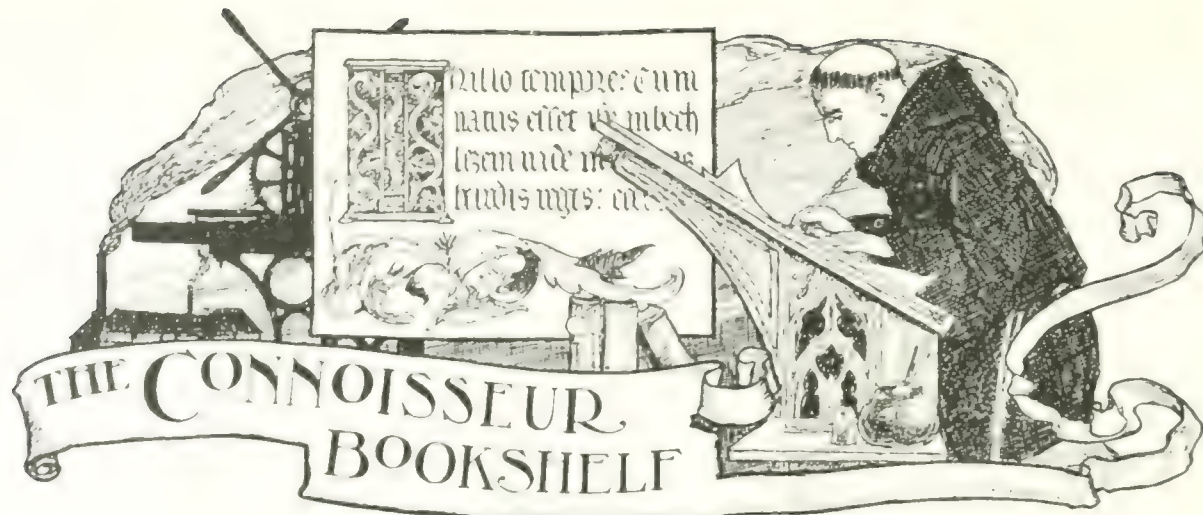 illo tempore: Cum
natus esset inbeth
leem iude
regis:
THE CONNOISSEUR
BOOKSHELF